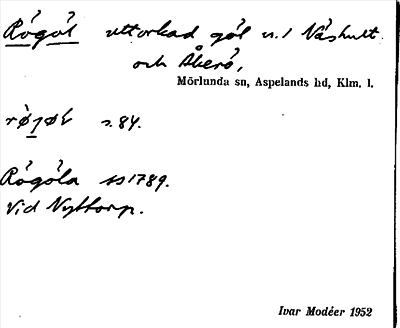 Rögöl uttorkad göl n.l Näshult
och Åkerö,
Mörlunda sn, Aspelands hd, Klm. l.
s. 84.
Rögöla ss 1789.
Vid Nyttorp.
Ivar Modéer 1952